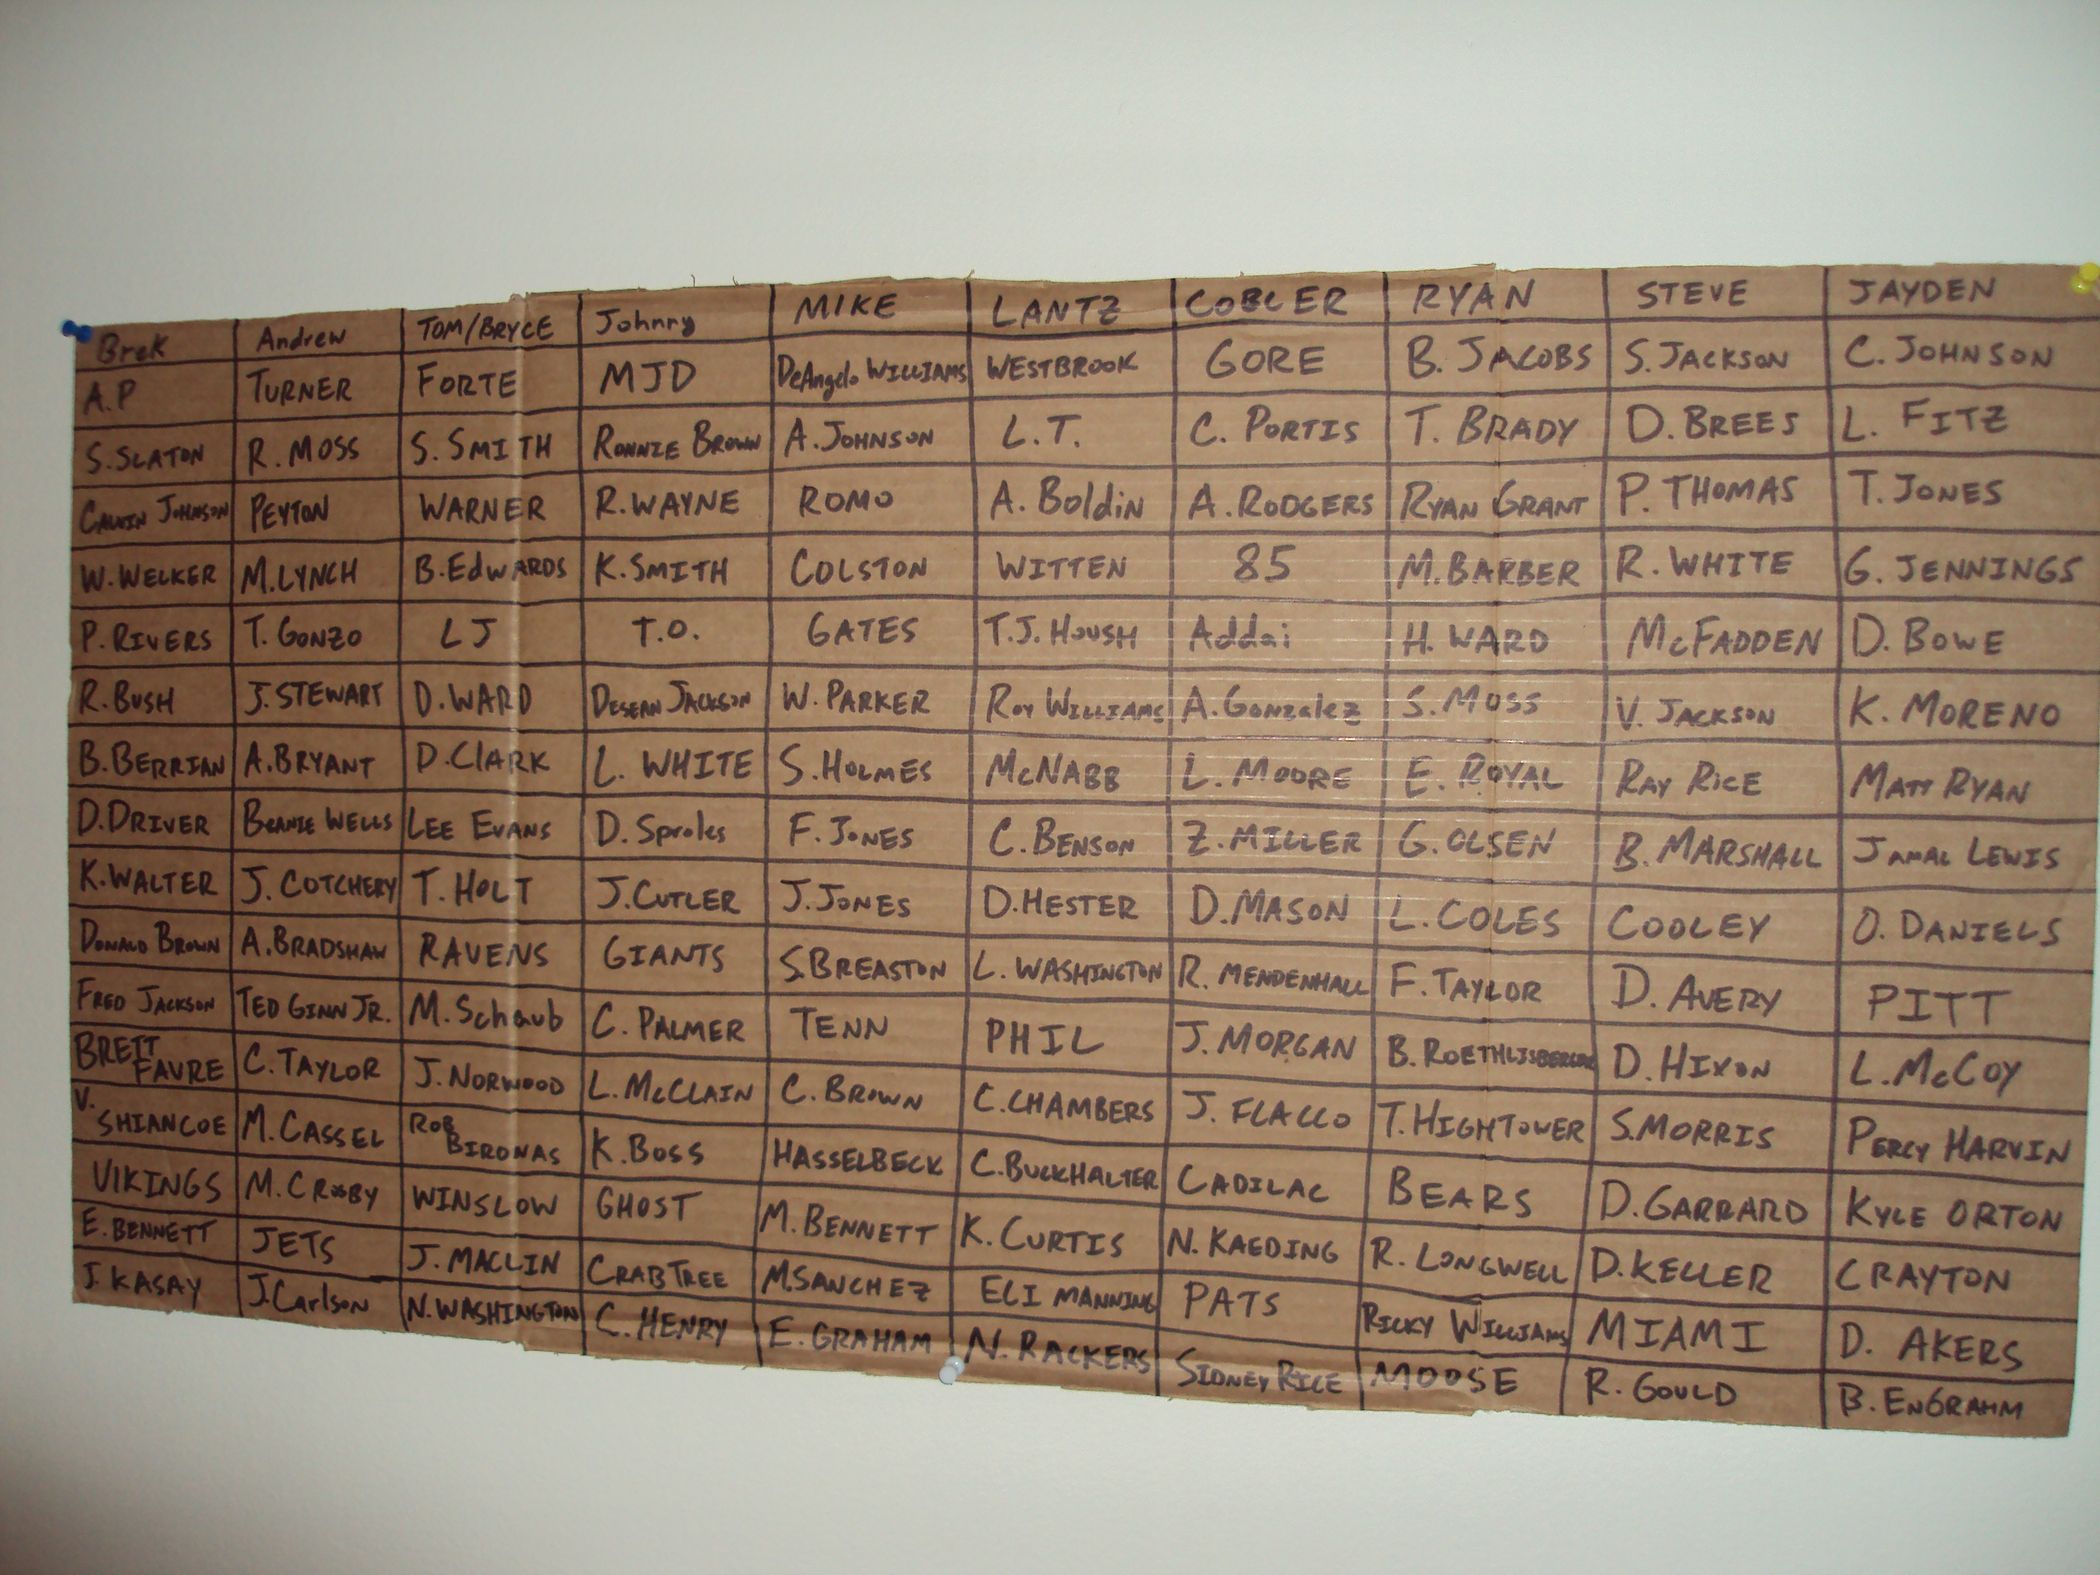 Brek Andrew TOM/BRYCE Johnny MIKE LANTZ COBLER RYAN STEVE JAYDEN
A.P TURNER FORTE MJD DeAngelo WILLIAMS WESTBROOK GORE B. JACOBS S. JACKSON C. JOHNSON
S. SLATON R. MOSS S. SMITH RONNIE BROWN A. JOHNSON L.T. C. PORTIS T. BRADY D. BREES L. FITZ
CALVIN JOHNSON PEYTON WARNER R. WAYNE ROMO A. Boldin A. RODGERS RYAN GRANT P. THOMAS T. JONES
W. WELKER M. LYNCH B. EdWARDS K. SMITH COLSTON WITTEN 85 M. BARBER R. WHITE G. JENNINGS
P. RIVERS T. GONZO LJ T.O. GATES T.J. HOUSH Addai H. WARD McFADDEN D. BOWE
R. BUSH J. STEWART D. WARD DESEAN JACKSON W. PARKER ROY WILLIAMS A. Gonzalez S. MOSS V. JACKSON K. MORENO
B. BERRIAN A. BRYANT D. ClARK L. WHITE S. HOLMES McNABB L. MOORE E. ROYAL RAY RICE MATT RYAN
D. DRIVER BEANIE WELLS LEE EVANS D. Sproles F. JONES C. BENSON Z. MILLER G. OLSEN B. MARSHALL JAMAL LEWIS
K. WALTER J. COTCHERY T. HOLT J. CUTLER J. JONES D. HESTER D. MASON L. COLES COOLEY O. DANIELS
DONALD BROWN A. BRADSHAW RAVENS GIANTS S. BREASTON L. WASHINGTON R. MENDENHALL F. TAYLOR D. AVERY PITT
FRED JACKSON TED GINN JR. M. Schaub C. PALMER TENN PHIL J. MORGAN B. ROETHLISBERGER D. HIXON L. McCOY
BRETT FAVRE C. TAYLOR J. NORWOOD L. McCLAIN C. BROWN C. CHAMBERS J. FLACCO T. HIGHTOWER S. MORRIS PERCY HARVIN
V. SHIANCOE M. CASSEL ROB BIRONAS K. BOSS HASSELBECK C. BUCKHALTER CADILAC BEARS D. GARRARD KYLE ORTON
VIKINGS M. CROSBY WINSLOW GHOST M. BENNETT K. CURTIS N. KAEDING R. LONGWELL D. KELLER CRAYTON
E. BENNETT JETS J. MACLIN CRABTREE M. SANCHEZ ELI MANNING PATS RICKY WILLIAMS MIAMI D. AKERS
J. KASAY J. Carlson N. WASHINGTON C. HENRY E. GRAHAM N. RACKERS SIDNEY RICE MOOSE R. GOULD B. ENGRAHM